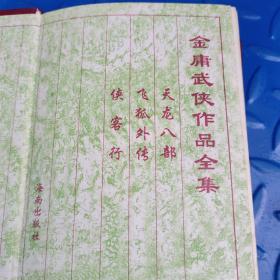 金庸武侠作品全集
天龙八部
飞狐外传
侠客行
海南出版社